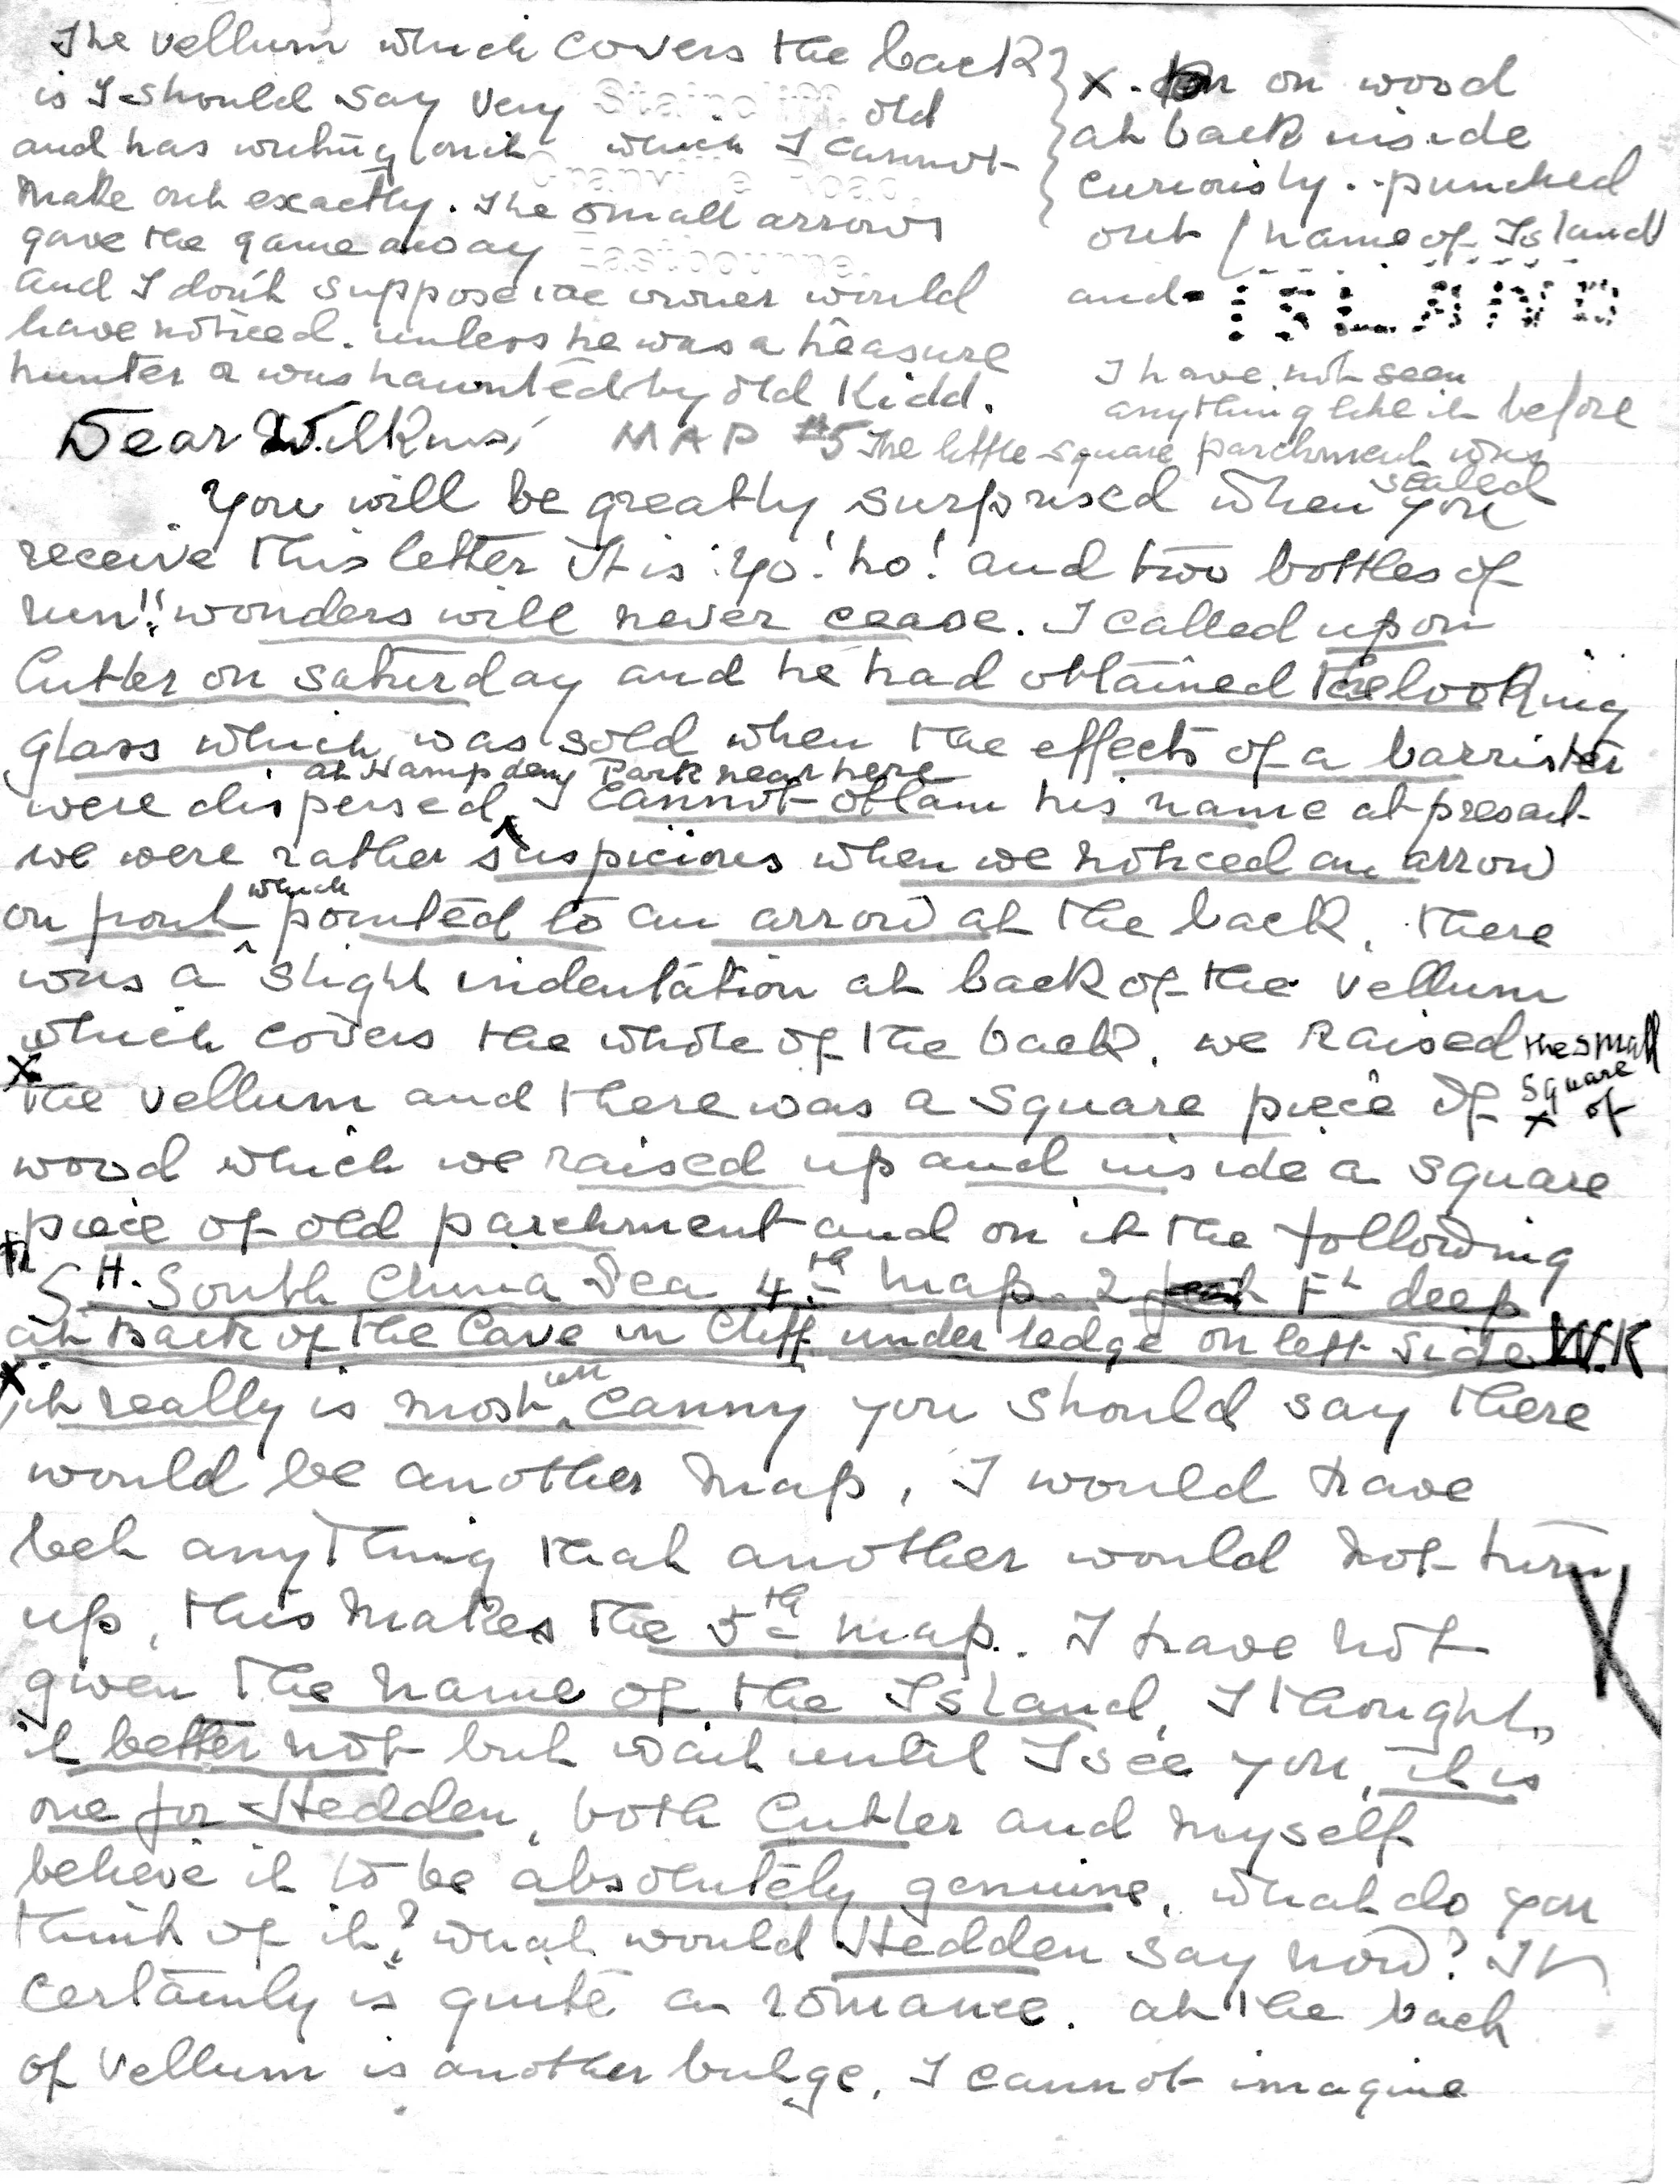 The vellum which covers the back
is I should say very old
and has writing on it which I cannot
make out exactly. The small arrows
gave the game away
and I don't suppose the owner would
have noticed. unless he was a treasure
hunter or was haunted by old Kidd.
x. on wood
at back inside
curiously.. punched
out (name of Island
and ISLAND
I have not seen
anything like it before
The little square parchment was
sealed
Staincliff.
Granville Road,
Eastbourne.
MAP #5
Dear Wilkins,
You will be greatly surprised when you
receive this letter It is :Yo! ho! and two bottles of
rum!! wonders will never cease. I called upon
Cutler on saturday and he had obtained the looking
glass which was sold when the effects of a barrister
at Hampden Park near here
were dispersed, I cannot obtain his name at present
we were rather suspicious when we noticed an arrow
on front which pointed to an arrow at the back, there
was a slight indentation at back of the vellum
which covers the whole of the back. we raised the small
square of
x the vellum and there was a square piece of x
wood which we raised up and inside a square
piece of old parchment and on it the following
S.H. South China Sea 4th map 2 Ft deep
at Back of the Cave in Cliff under ledge on left side W.K
x it really is most un canny you should say there
would be another map, I would have
bet anything that another would not turn
up, this makes the 5th map.. I have not
given the name of the Island, I thought
it better not but wait until I see you, it is
one for Hedden, both Cutler and myself
believe it to be absolutely genuine, what do you
think of it? what would Hedden say now? It
certainly is quite a romance. at the back
of vellum is another bulge, I cannot imagine